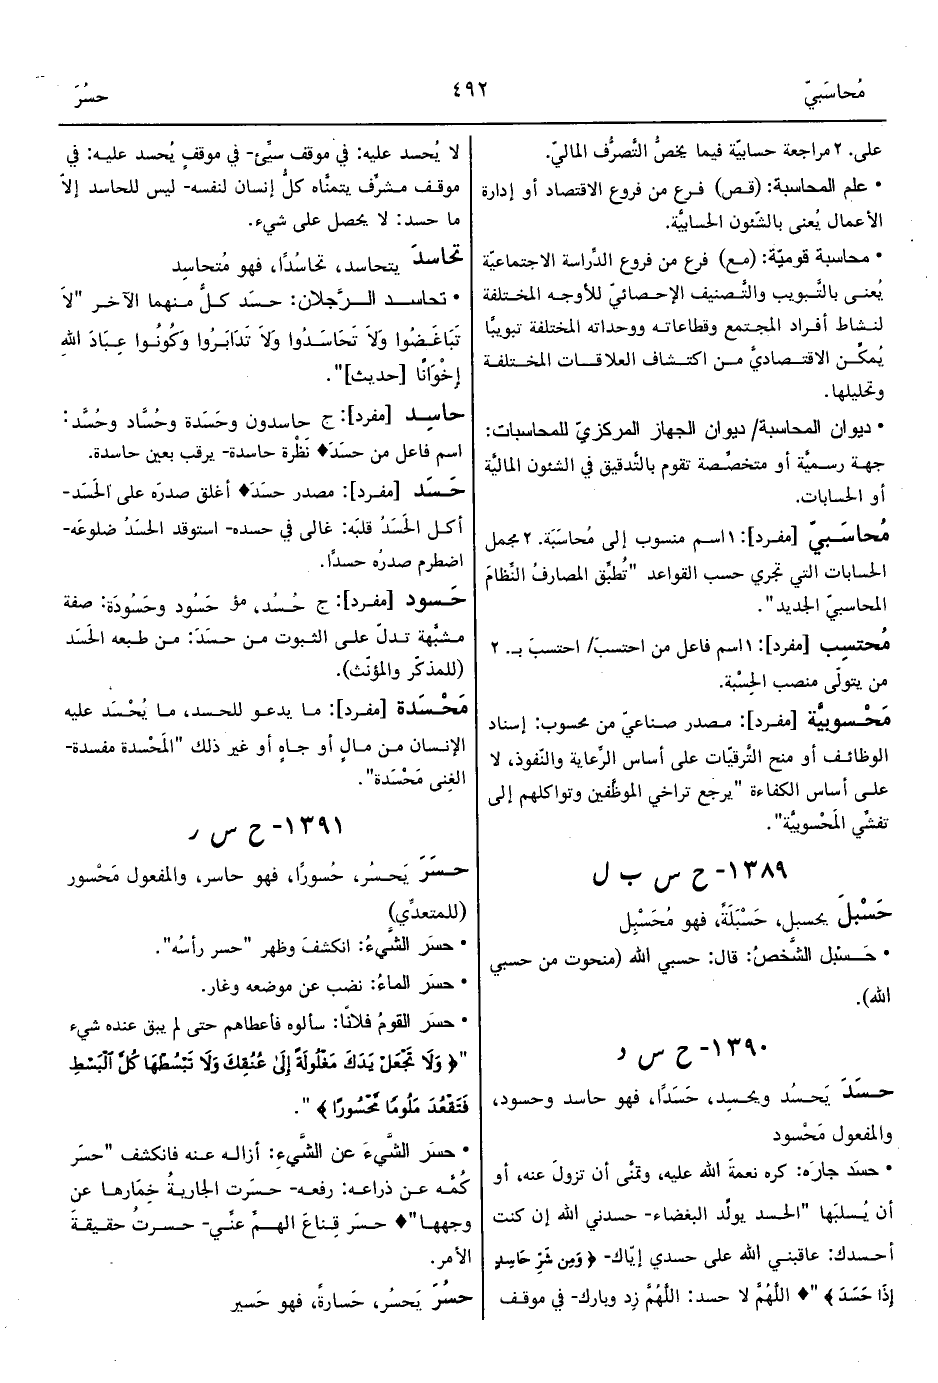 مُحاسَبيّ
٤٩٢
حسُرَ
على. ٢ مراجعة حسابيّة فيما يخصُّ التَّصرُّف الماليّ.
• علم المحاسبة: (قص) فرع من فروع الاقتصاد أو إدارة
الأعمال يُعنى بالشَّئون الحسابيَّة.
• محاسبة قوميّة: (مع) فرع من فروع الدِّراسة الاجتماعيَّة
يُعنى بالتَّبويب والتَّصنيف الإحصائيّ للأوجه المختلفة
لنشاط أفراد المجتمع وقطاعاته ووحداته المختلفة تبويبًا
يُمكِّن الاقتصاديَّ من اكتشاف العلاقات المختلفة
وتحليلها.
• ديوان المحاسبة/ ديوان الجهاز المركزيّ للمحاسبات:
جهة رسميَّة أو متخصِّصة تقوم بالتَّدقيق في الشئون الماليَّة
أو الحسابات.
مُحاسَبيّ [مفرد]: ١ اسم منسوب إلى مُحاسَبَة. ٢ مجمل
الحسابات التي تجري حسب القواعد "تُطبِّق المصارفُ النِّظامَ
المحاسبيّ الجديد".
مُحتسِب [مفرد]: ١ اسم فاعل من احتسبَ/ احتسبَ بـ. ٢
من يتولّى منصب الحِسْبة.
مَحْسوبيَّة [مفرد]: مصدر صناعيّ من محسوب: إسناد
الوظائف أو منح التَّرقيّات على أساس الرِّعاية والنّفوذ، لا
على أساس الكفاءة "يرجع تراخي الموظَّفين وتواكلهم إلى
تفشِّي المَحْسوبيَّة".
١٣٨٩- ح س ب ل
حَسْبلَ يحسبل، حَسْبَلَةً، فهو مُحَسْبِل
• حَسْبل الشَّخصُ: قال: حسبي الله (منحوت من حسبي
الله).
١٣٩٠- ح س د
حسَدَ يَحسُد ويحسِد، حَسَدًا، فهو حاسد وحسود،
والمفعول مَحْسود
• حسَد جارَه: كره نعمةَ الله عليه، وتمَّنى أن تزولَ عنه، أو
أن يُسلبَها "الحسد يولِّد البغضاء- حسدني الله إن كنت
أحسدك: عاقبني الله على حسدي إيّاك- ﴿وَمِن شَرِّ حَاسِدٍ
إِذَا حَسَدَ﴾"♦ اللَّهُمَّ لا حسد: اللَّهُمَّ زِد وبارك- في موقف
لا يُحسد عليه: في موقف سيِّئ- في موقفٍ يُحسد عليه: في
موقف مشرِّف يتمنَّاه كلُّ إنسان لنفسه- ليس للحاسد إلاّ
ما حسد: لا يحصل على شيء.
تحاسدَ يتحاسد، تحاسُدًا، فهو مُتحاسِد
• تحاسد الرَّجلان: حسَد كلٌّ منهما الآخر "لاَ
تَبَاغَضُوا وَلاَ تَحَاسَدُوا وَلاَ تَدَابَرُوا وَكُونُوا عِبَادَ اللهِ
إِخْوَانًا [حديث]".
حاسِد [مفرد]: ج حاسدون وحَسَدة وحُسَّاد وحُسَّد:
اسم فاعل من حسَدَ♦ نَظْرة حاسدة- يرقب بعين حاسدة.
حَسَد [مفرد]: مصدر حسَدَ♦ أغلق صدرَه على الحَسَد-
أكل الحَسَدُ قلبَه: غالى في حسده- استوقد الحَسَدُ ضلوعَه-
اضطرم صدرُه حسدًا.
حَسود [مفرد]: ج حُسُد، مؤ حَسُود وحَسُودَة: صفة
مشبَّهة تدلّ على الثبوت من حسَدَ: من طبعه الحَسَد
(للمذكّر والمؤنّث).
مَحْسَدة [مفرد]: ما يدعو للحسد، ما يُحْسَد عليه
الإنسان من مالٍ أو جاهٍ أو غير ذلك "المَحْسدة مفسدة-
الغِنى مَحْسَدة".
١٣٩١- ح س ر
حسَرَ يَحسُر، حُسورًا، فهو حاسر، والمفعول مَحْسور
(للمتعدِّي)
• حسَرَ الشَّيءُ: انكشفَ وظهر "حسر رأسُه".
• حسَرَ الماءُ: نضب عن موضعه وغار.
• حسَر القومُ فلانًا: سألوه فأعطاهم حتى لم يبق عنده شيء
"﴿وَلَا تَجْعَلْ يَدَكَ مَغْلُولَةً إِلَىٰ عُنُقِكَ وَلَا تَبْسُطْهَا كُلَّ ٱلْبَسْطِ
فَتَقْعُدَ مَلُومًا مَّحْسُورًا﴾".
• حسَرَ الشَّيءَ عن الشَّيءِ: أزاله عنه فانكشف "حسَر
كُمَّه عن ذراعه: رفعه- حسَرت الجاريةُ خِمَارها عن
وجهها"♦ حسَر قِناعَ الهمِّ عنِّي- حسرتُ حقيقةَ
الأمر.
حسُرَ يَحسُر، حَسارةً، فهو حَسير